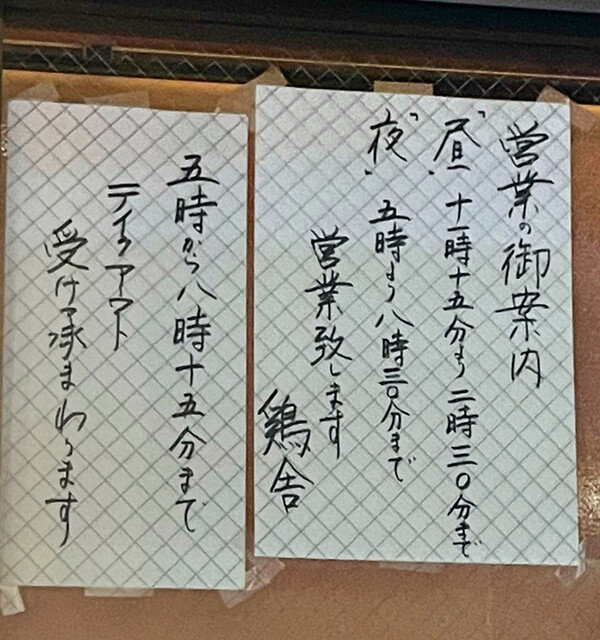 営業の御案内
「昼」十一時十五分より二時三〇分まで
「夜」五時より八時三〇分まで
営業致します
鶏舎
五時から八時十五分まで
テイクアウト
受け承まわります